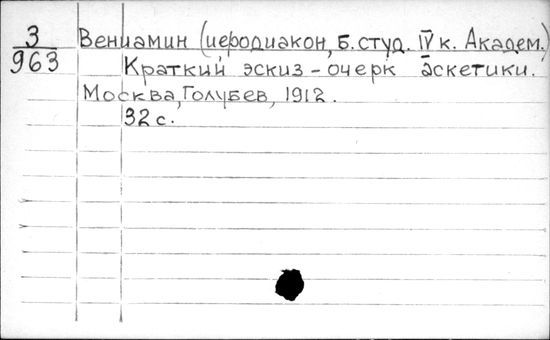 3 Вениамин (иеродиакон, б. студ. IV к. Академ.)
963 Краткий эскиз - очерк аскетики.
Москва, Голубев, 1912.
32 с.